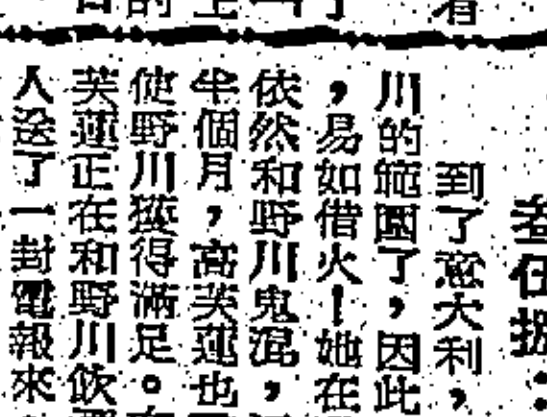 到了意大利，
川的範圍了，因此
，易如借火！她在
依然和野川鬼混，
半個月，高芙蓮也
使野川獲得滿足。
芙蓮正在和野川飲
人送了一封電報來